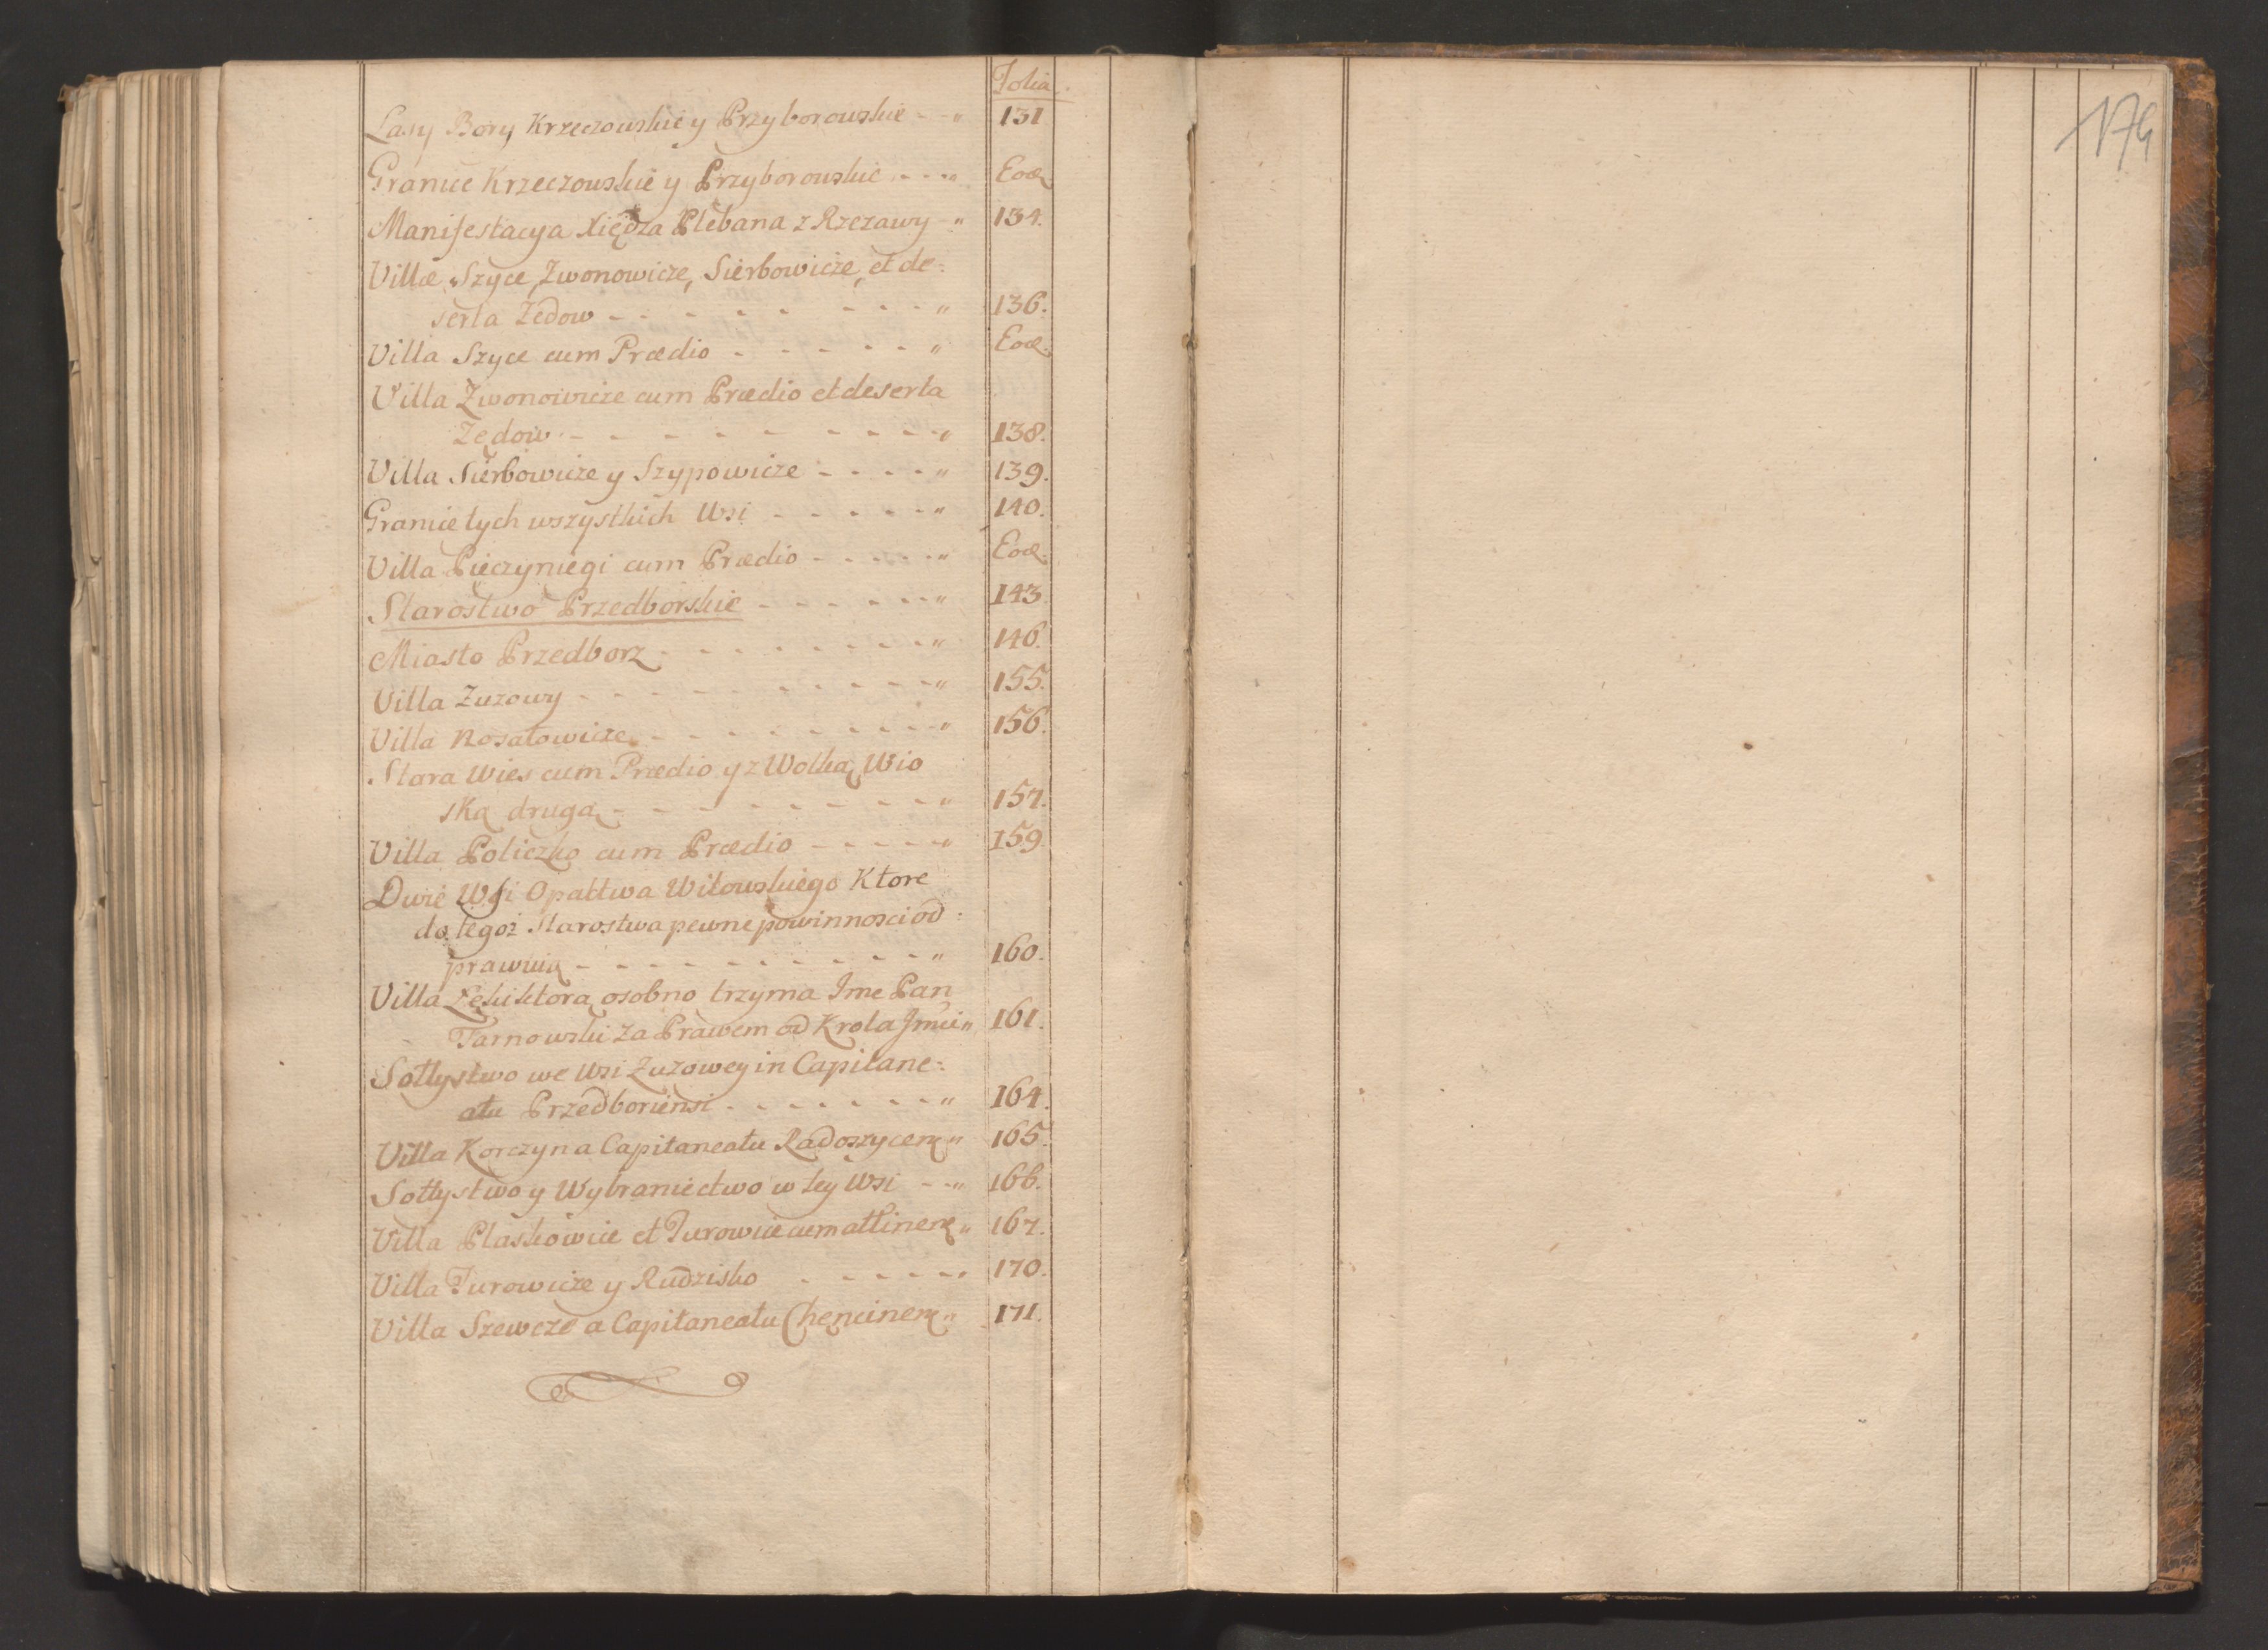 Folia.
Lasy Bory Krzeczowskie y Przyborowskie - - " 131
Granice Krzeczowskie y Przyborowskie - - - " Eod
Manifestacya Xiędza Plebana z Rzezawy - " 134.
Villæ Szyce, Zwonowicze, Sierbowicze, et de:
serta Zedow - - - - - - - - " 136.
Villa Szyce cum Prædio - - - - - " Eod.
Villa Zwonowicze cum Prædio et deserta
Zędow - - - - - - - - - " 138.
Villa Sierbowicze y Szypowicze - - - - " 139.
Granice tych wszystkich Wsi - - - - - " 140.
Villa Pieczyniegi cum Prædio - - - - - " Eod.
Starostwo Przedborskie - - - - - - " 143
Miasto Przedborz - - - - - - - - " 146.
Villa Zuzowy - - - - - - - - - - " 155.
Villa Rosatowicze - - - - - - - - - " 156.
Stara Wies cum Prædio y z Wolką Wio
ską drugą - - - - - - - - - " 157.
Villa Policzko cum Prædio - - - - - " 159
Dwie Wsi Opattwa Witowskiego Ktore
do tegoż Starostwa pewne powinnosci od:
prawuią - - - - - - - - - - " 160.
Villa Łęki ktorą osobno trzyma Jmc Pan
Tarnowski za Prawem od Krola Jmci " 161.
Sołtystwo we Wsi Zuzowey in Capitane:
atu Przedboriensi - - - - - - - " 164.
Villa Korczyn a Capitaneatu Radoszycen " 165.
Sołtystwo y Wybraniectwo w tey Wsi - - " 166.
Villa Plaskowice et Turowice cum attinen " 167.
Villa Turowicze y Rudzisko - - - - - " 170.
Villa Szewcze a Capitaneatu Chęncinen " 171.
174